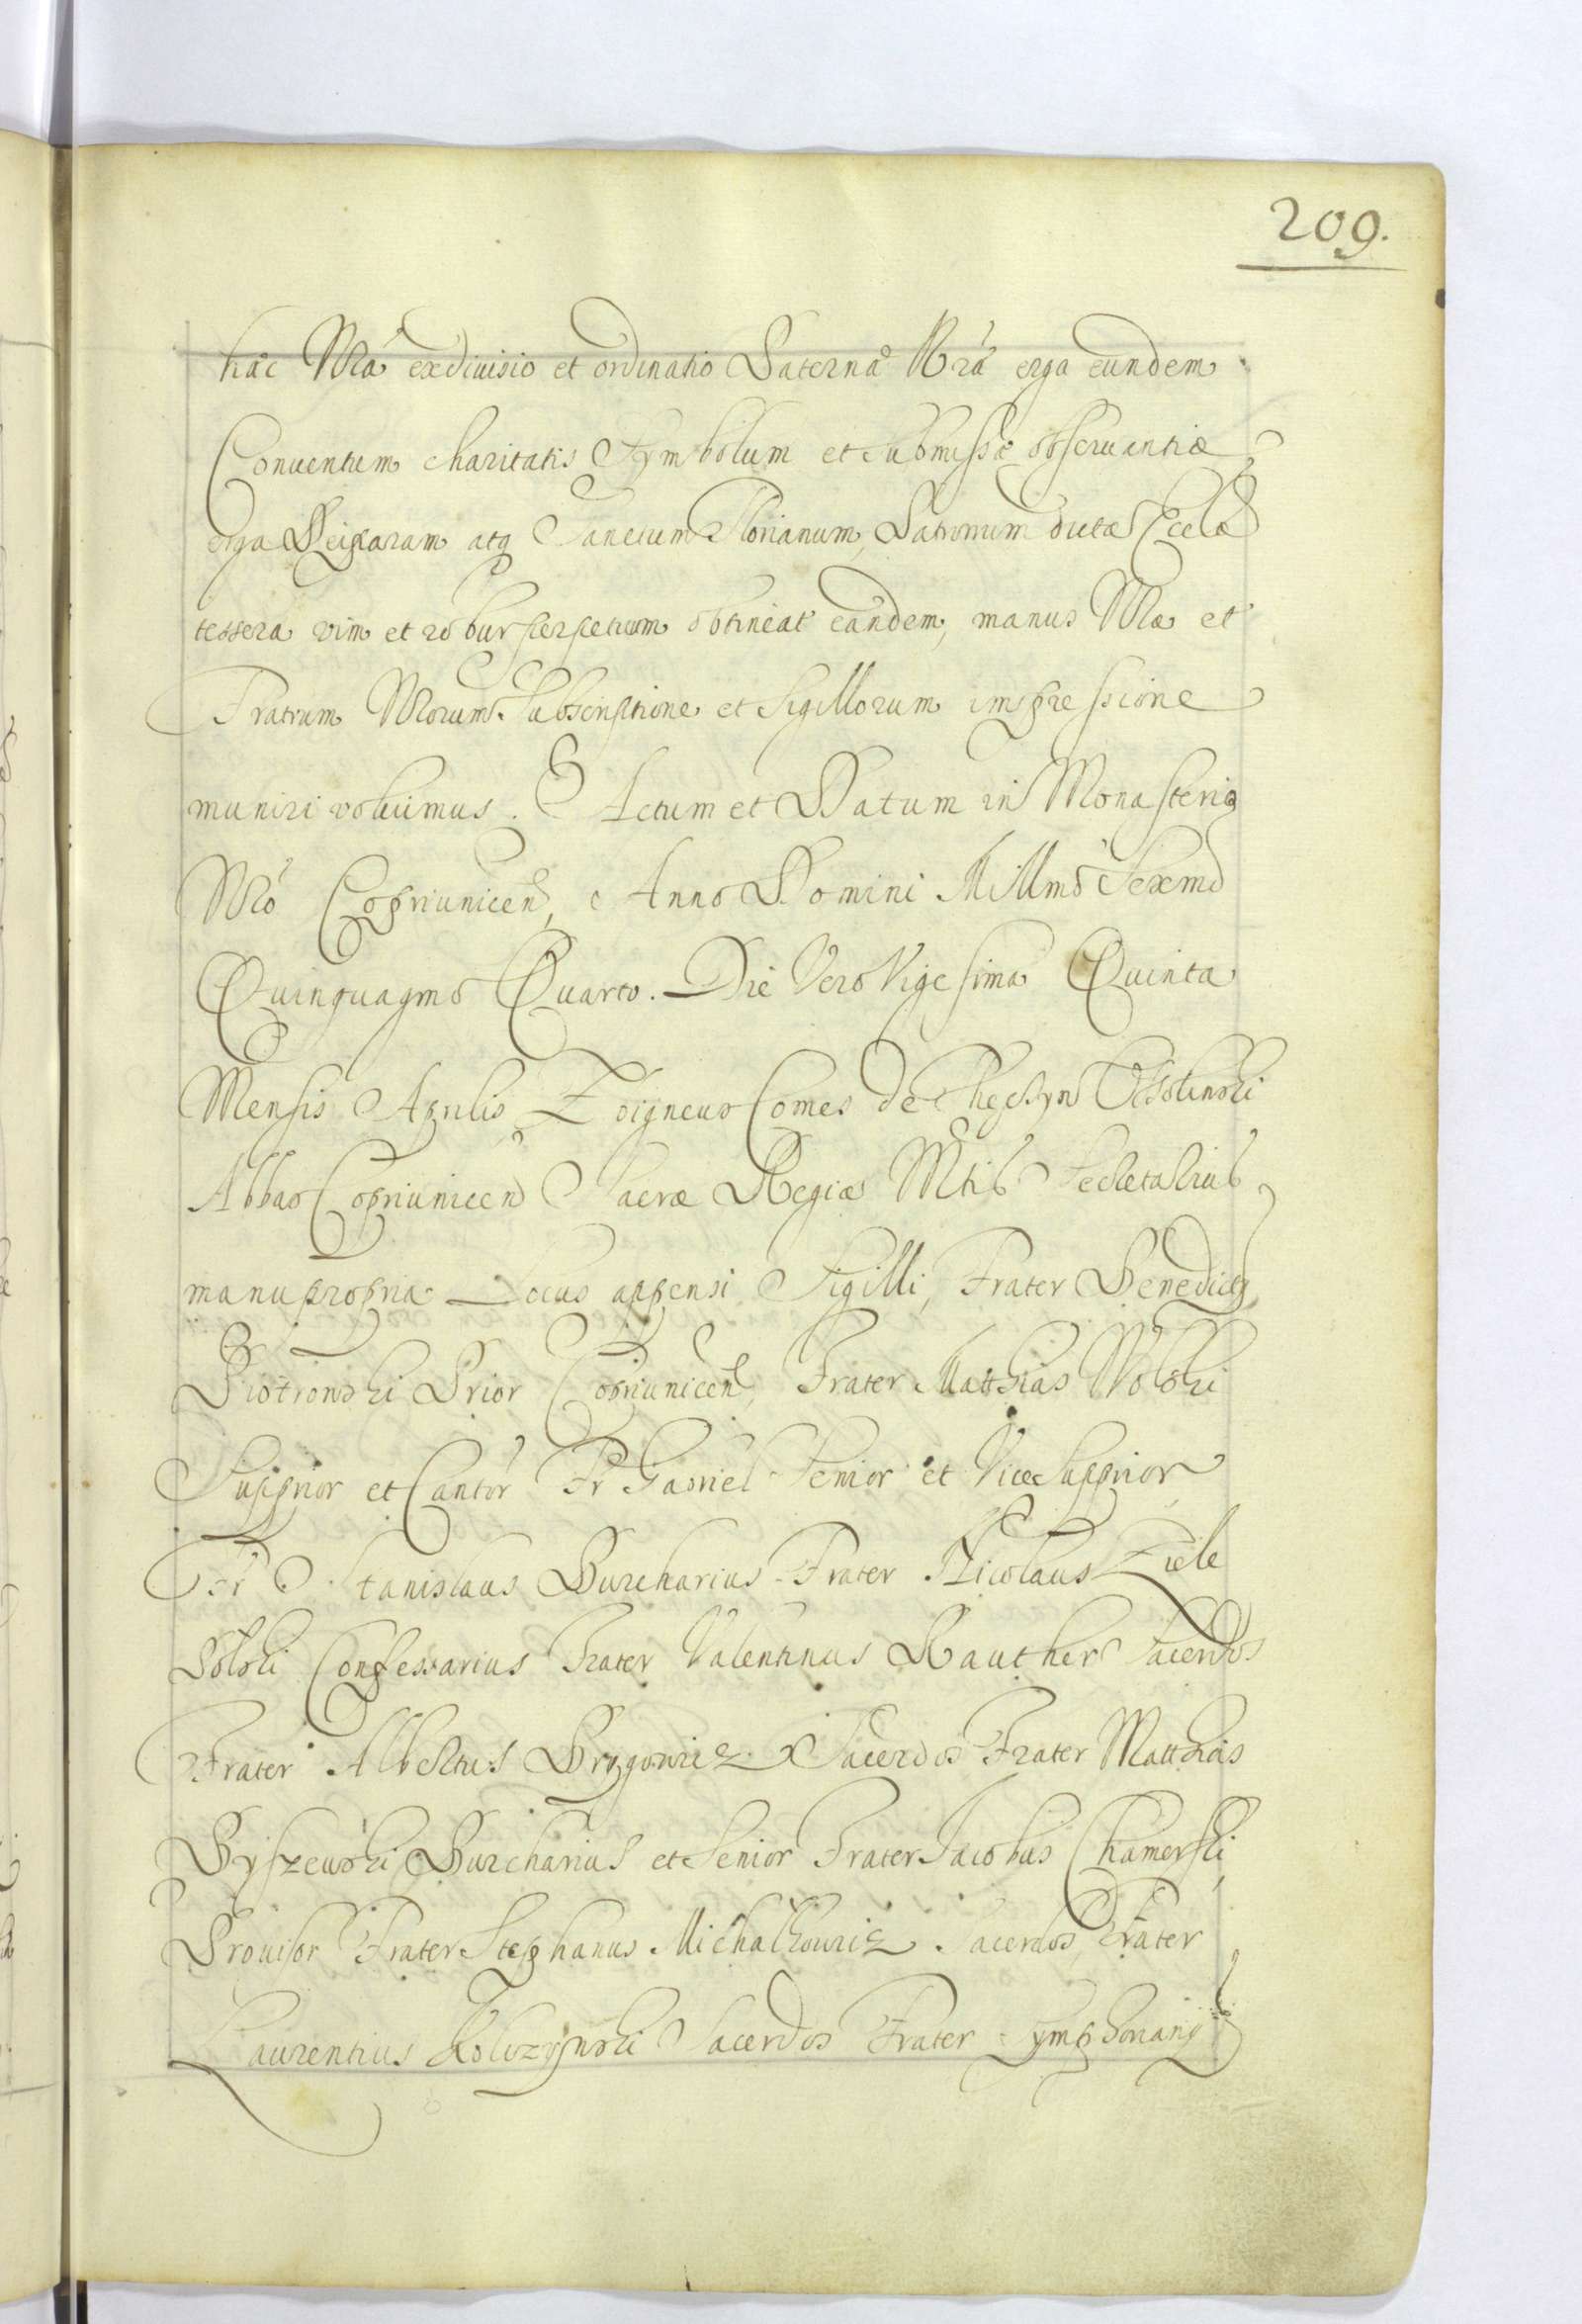 209.
hac Nrã exdiuisio et ordinatio Paterna Nrã erga eundem
Conuentum charitatis Symbolum et submissæ obseruantiæ
erga Deiparam atq Sanctum Florianum, Patronum dictæ Eccła
tessera vim et robur perpetuum obtineat eandem, manus Nræ et
Fratrum Nrorum Subscriptione et Sigillorum impressione
muniri voluimus. Actum et Datum in Monasterio
Nrõ Copriunicen, Anno Domini Millmo Sexmo
Quinquagmo Quarto. Die Vero Vigesima Quinta
Mensis Aprilis Zbigneus Comes de Thęczyn Ossolinski
Abbas Copriunicen Sacræ Regiæ Mtis Secretarius
manu propria Locus appensi Sigilli, Frater Benedictus
Piotrowski Prior Copriunicen, Frater Matthias Wolski
Supprior et Cantor Fr Gabriel Senior et Vice Supprior
Fr Stanislaus Burcharius Frater Nicolaus Ziele
Polski Confessarius Frater Valentinus Rauther Sacerdos
Frater Albertus Brygowicz Sacerdos Frater Matthias
Byszewski Burcharius et Senior Frater Jacobus Chamerski
Prouisor Frater Stephanus Michalkowicz Sacerdos Frater
Laurentius Sacerdos Frater Symphorianus